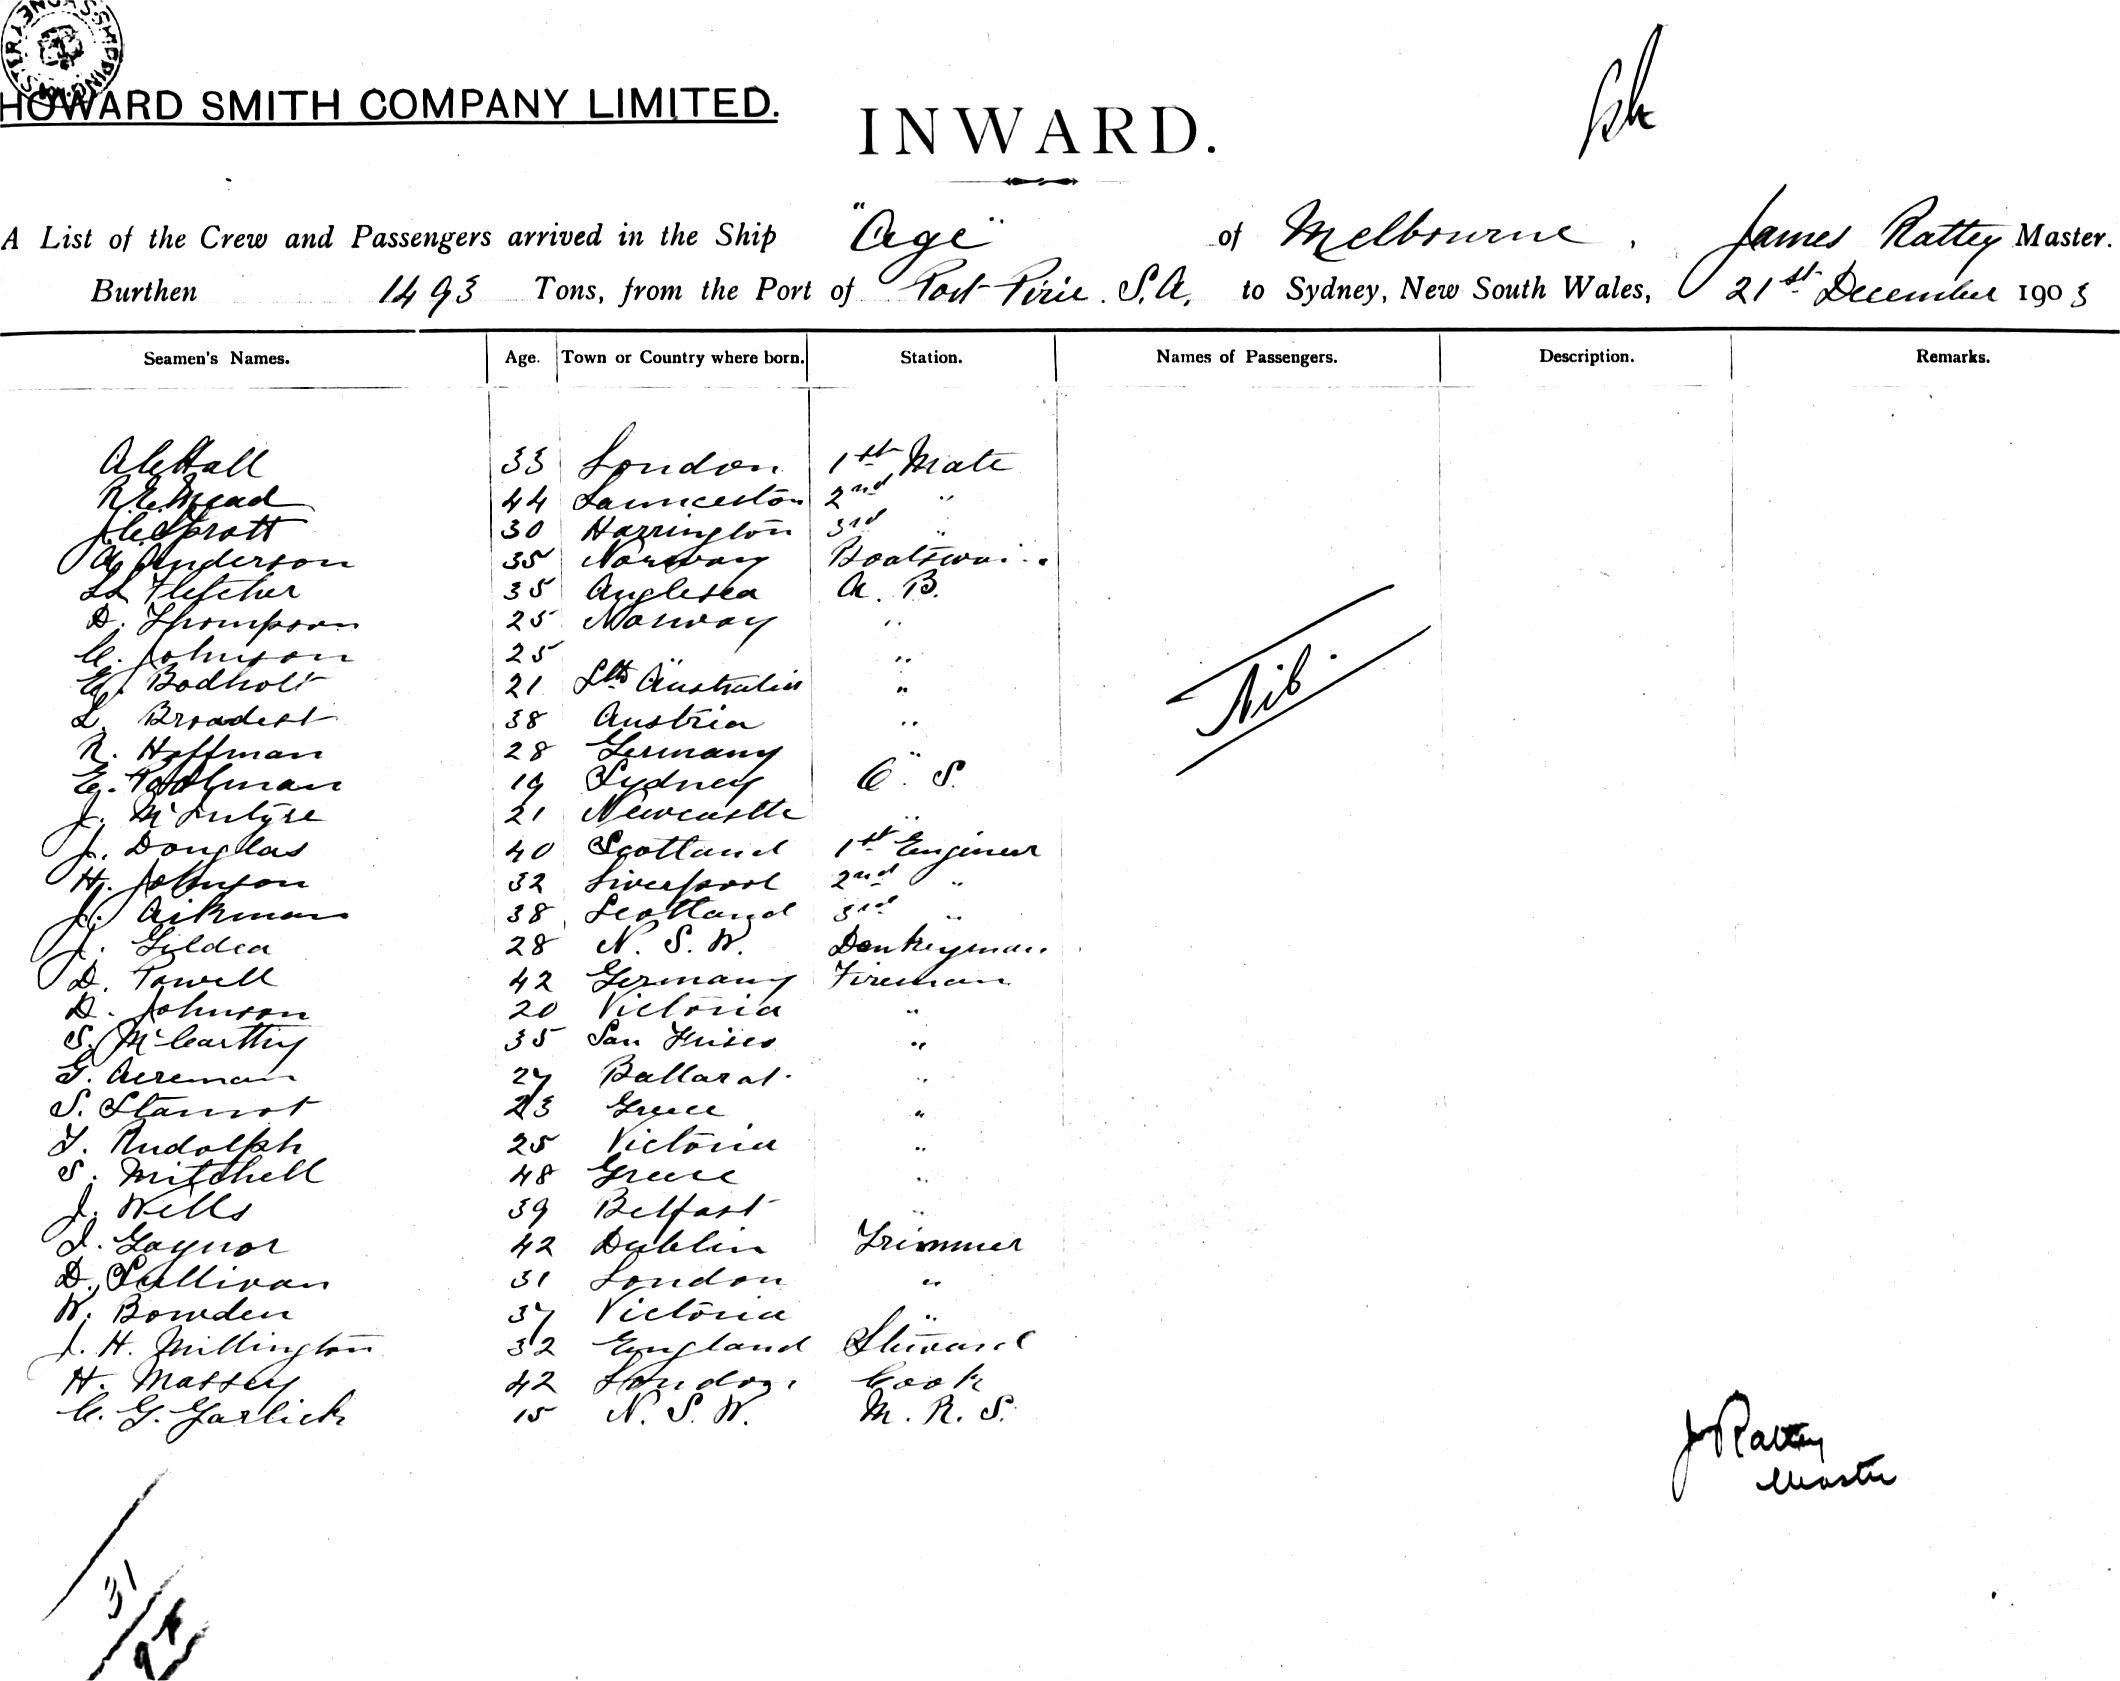 HOWARD SMITH COMPANY LIMITED.
INWARD.
A List of the Crew and Passengers arrived in the Ship "Age" of Melbourne, James Rattey Master.
Burthen 1493 Tons, from the Port of Port Pirie. S.A. to Sydney, New South Wales, 21st December 1903
Seamen's Names. Age. Town or Country where born. Station. Names of Passengers. Description. Remarks.
A C Hall 33 London 1st Mate
R. E. Mead 44 Launceston 2nd "
J. C. Sprott 30 Harrington 3rd "
A. Anderson 35 Norway Boatswain
Fletcher 35 Anglesea A. B.
D. Thompson 25 Norway "
C. Johnson 25 " "
E. Bodholt 21 Sth Australia "
L. Broadest 38 Austria "
R. Hoffman 28 Germany "
E. 19 Sydney O. S.
J. McIntyre 21 Newcastle "
J. Douglas 40 Scotland 1st Engineer
H. Johnson 32 Liverpool 2nd "
J. Aikman 38 Scotland 3rd "
J. Gildea 28 N. S. W. Donkeyman
D. Powell 42 Germany Fireman
D. Johnson 20 Victoria "
S. McCarthy 35 San "
G. Acreman 27 Ballarat "
S. Stamot 23 Greece "
F. Rudolph 25 Victoria "
S. Mitchell 48 Greece "
J. Wells 39 Belfast "
J. Gaynor 42 Dublin Trimmer
D. Sullivan 31 London "
W. Bowden 37 Victoria "
J. H. Millington 32 England Steward
H. Massey 42 London Cook
C. G. Garlick 15 N. S. W. M. R. S.
Nil.
J Rattey
Master
31